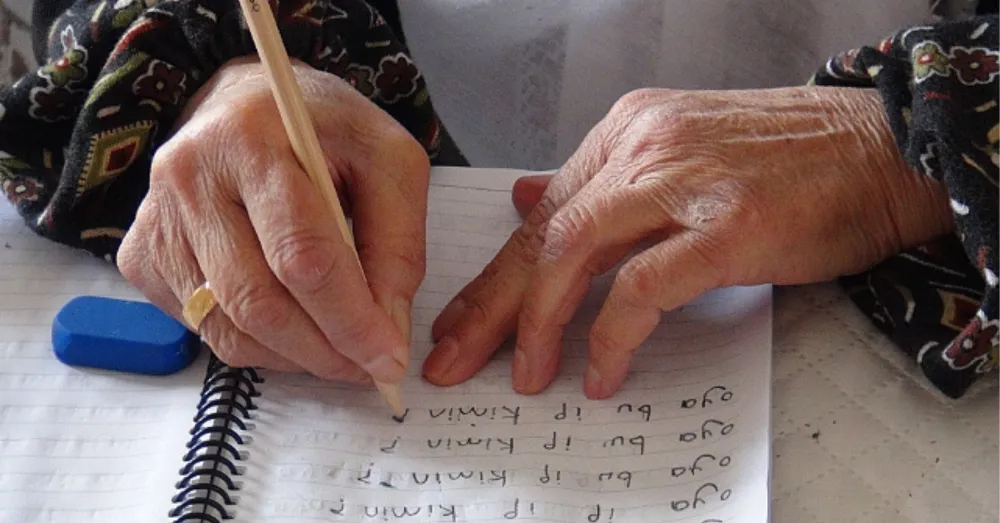 oya ip kimin ?
oya bu ip kimin ?
oya bu ip kimin ?
oya bu ip kimin ?